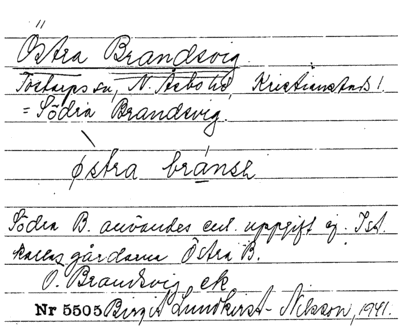 Östra Brandsvig
Tostarps sn, N. Åsbo hd, Kristianstads l.
= Södra Brandsvig.
østra bránsh
Södra B. användes enl. uppgift ej. I st.
kallas gårdarna Östra B.
O. Brandsvig ek
Nr 5505 Birgit Lundkvist-Nilsson, 1941.